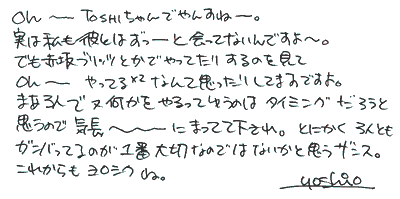 Oh 〜 TOSHIちゃんでやんすねー。
実は私も彼とはずっーと会ってないんですよ〜。
でも赤坂ブリッツとかでやってたりするのを見て
Oh〜 やってる×2 なんて思ったりしてますですよ。
まあ2人で又何かをやるってゆうのは タイミングだろうと
思うので気長〜〜にまってて下され。とにかく2人とも
ガンバってるのが1番大切なのではないかと思うザンス。
これからもヨロシクね。
yoshiro